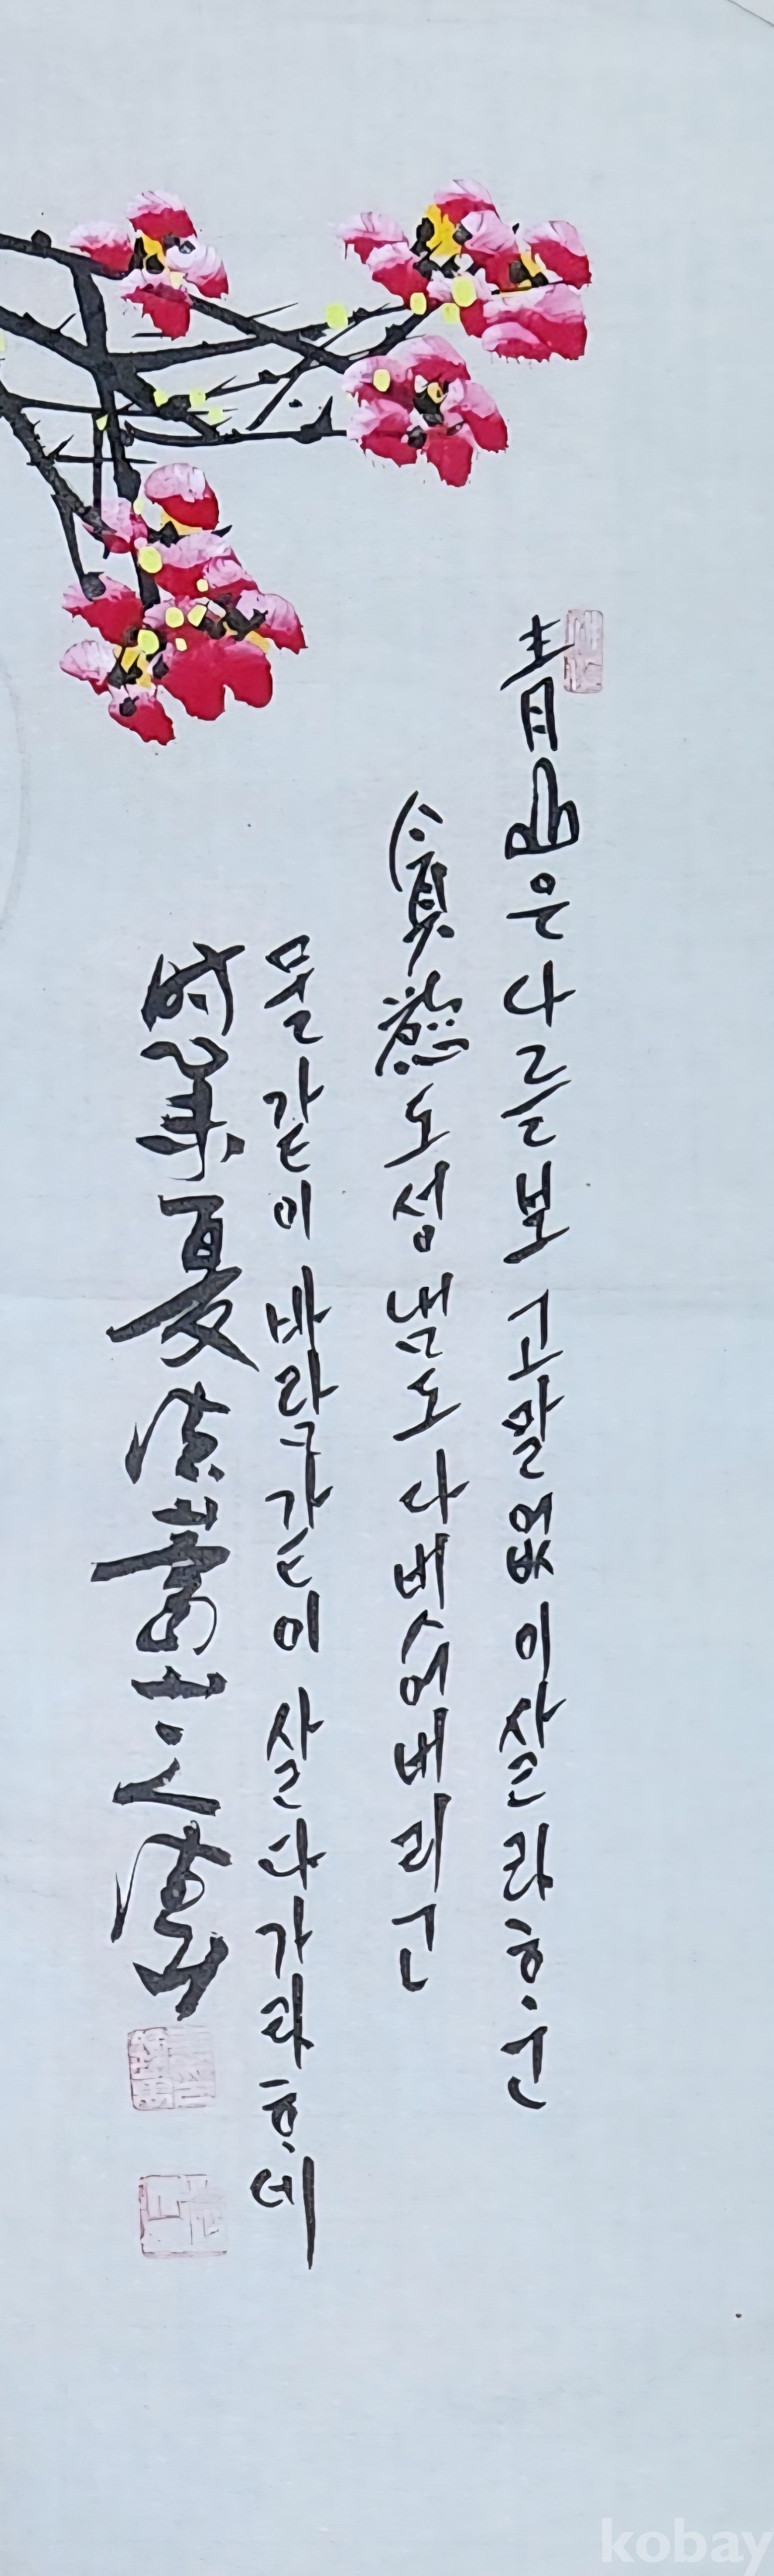 青山은나를보고말없이살라ᄒᆞ곤
貪慾도성냄도다벗어버리곤
물같이바람같이살다가라ᄒᆞ네
时癸未夏
kobay